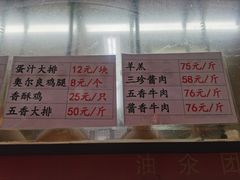 蛋汁大排 12元/块
奥尔良鸡腿 8元/个
香酥鸡 25元/只
五香大排 50元/斤
羊羔 75元/斤
三珍酱肉 58元/斤
五香牛肉 76元/斤
酱香牛肉 76元/斤
油氽团